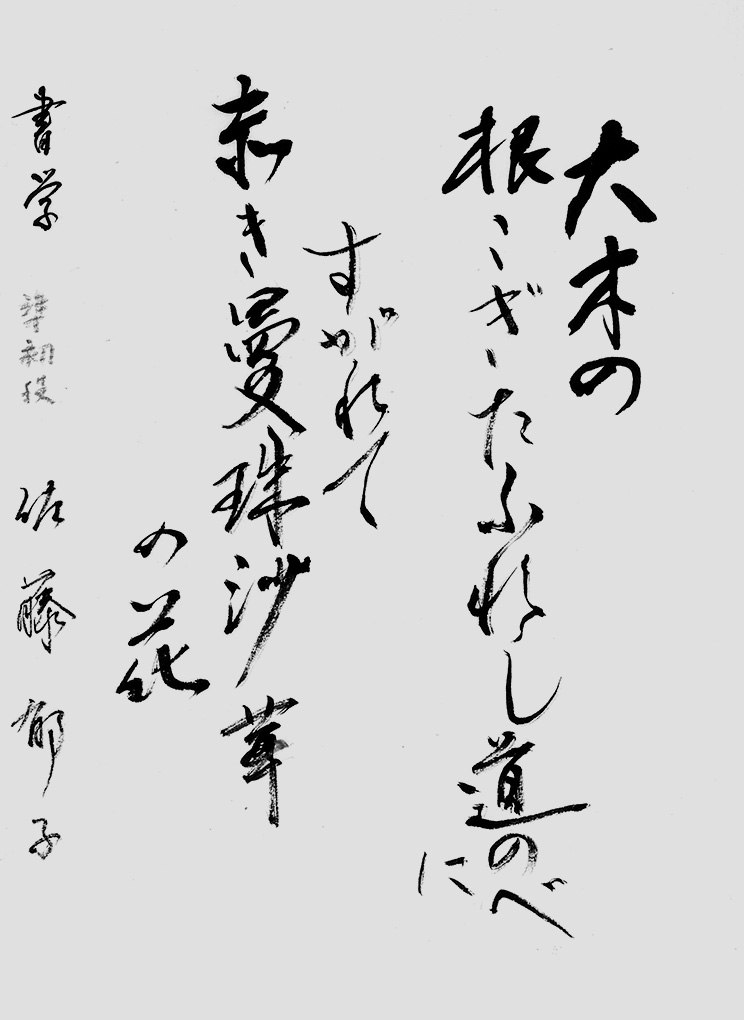 大木の
根こぎたふれし道のべ
に
すがれて
赤き曼珠沙華
の花
書学 準初段 佐藤郁子